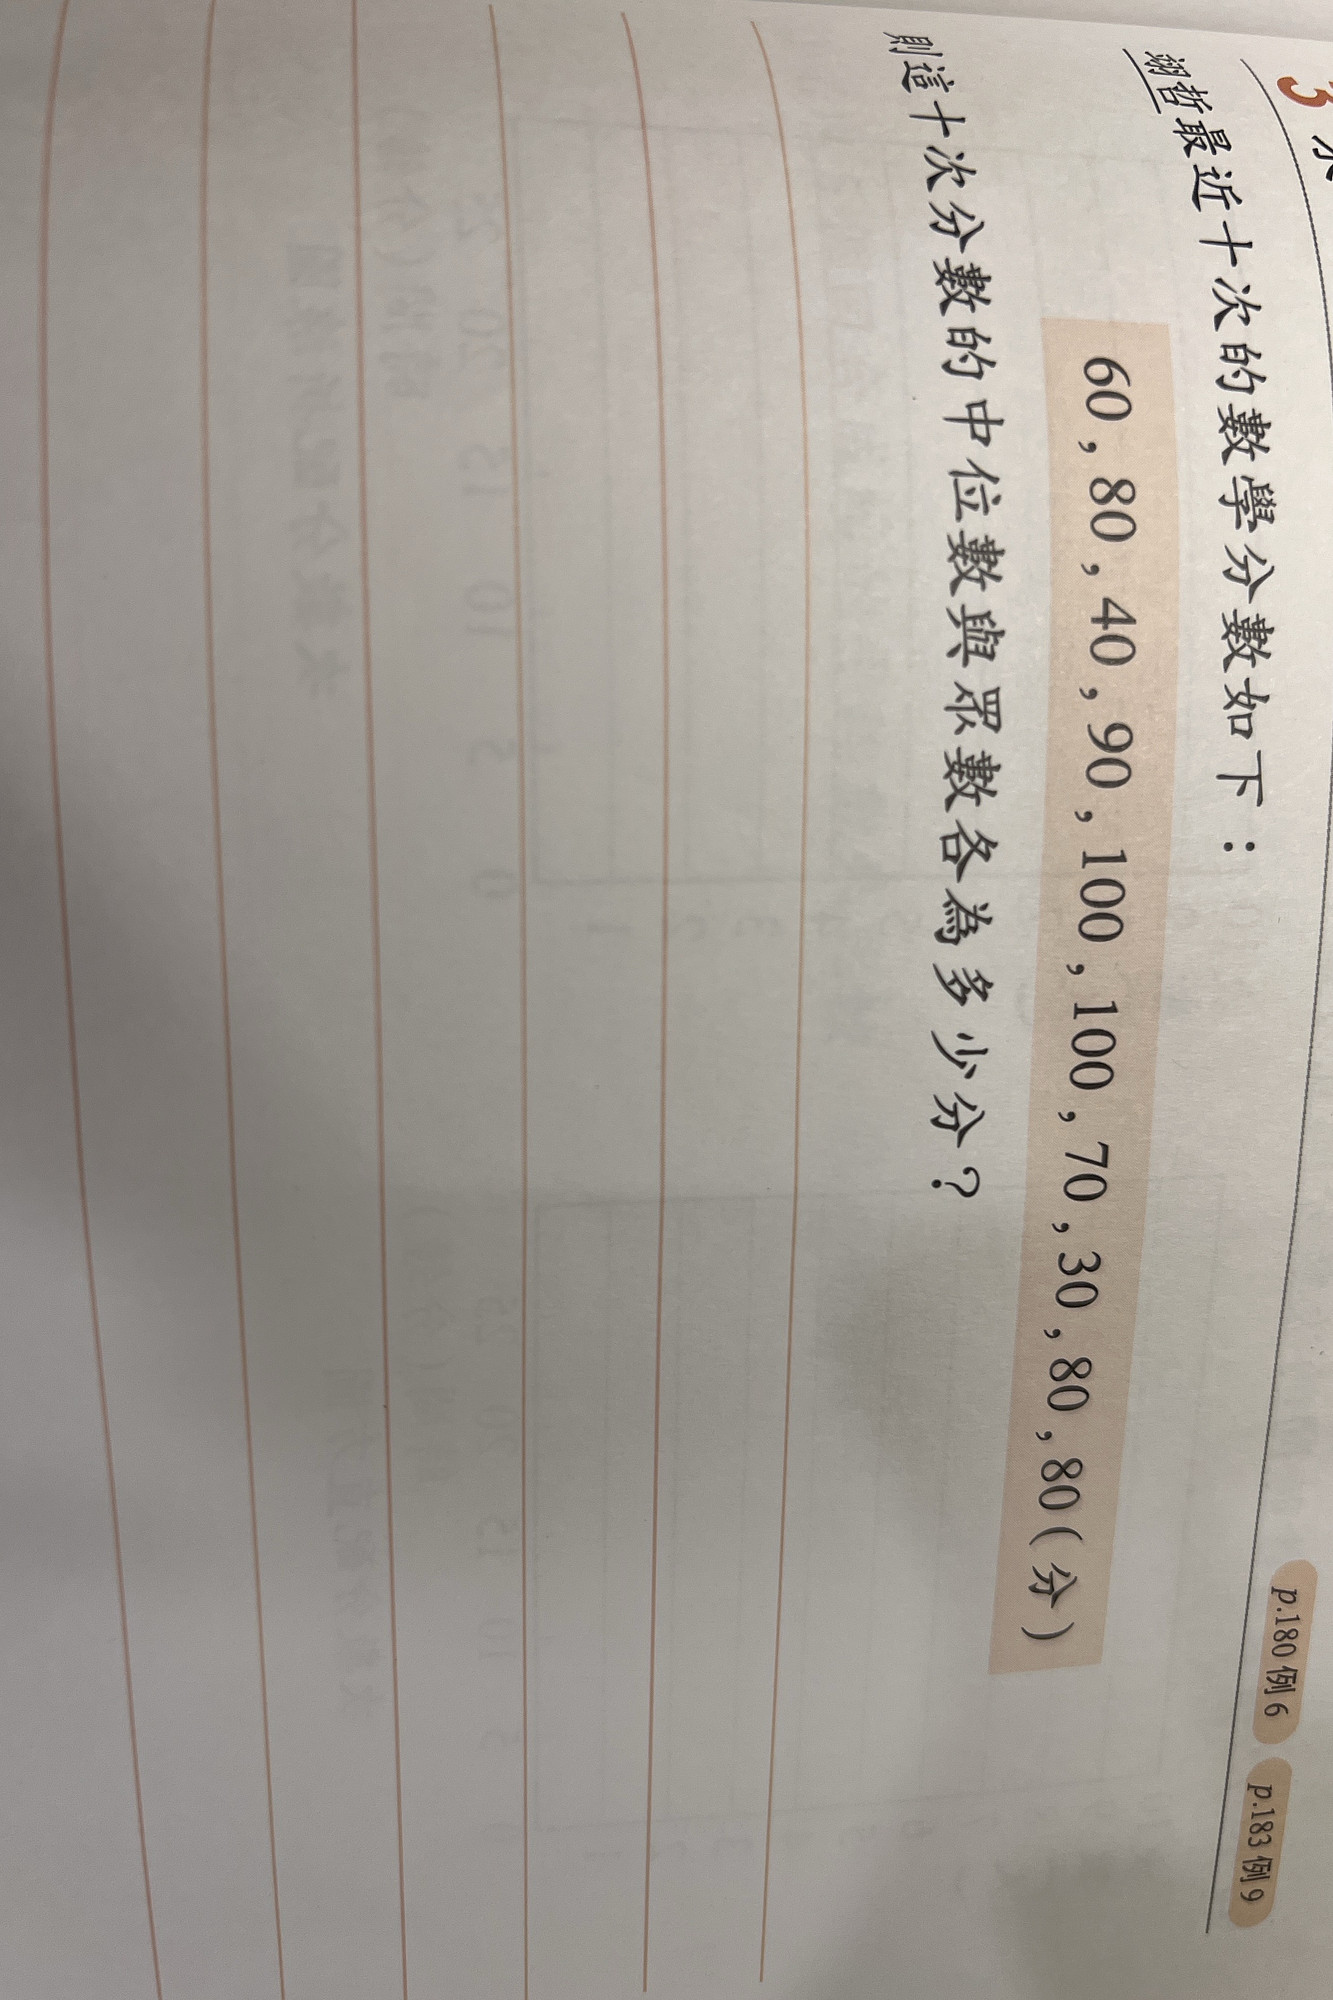 3
p.180 例6 p.183 例9
翊哲最近十次的數學分數如下：
60，80，40，90，100，100，70，30，80，80(分)
則這十次分數的中位數與眾數各為多少分？